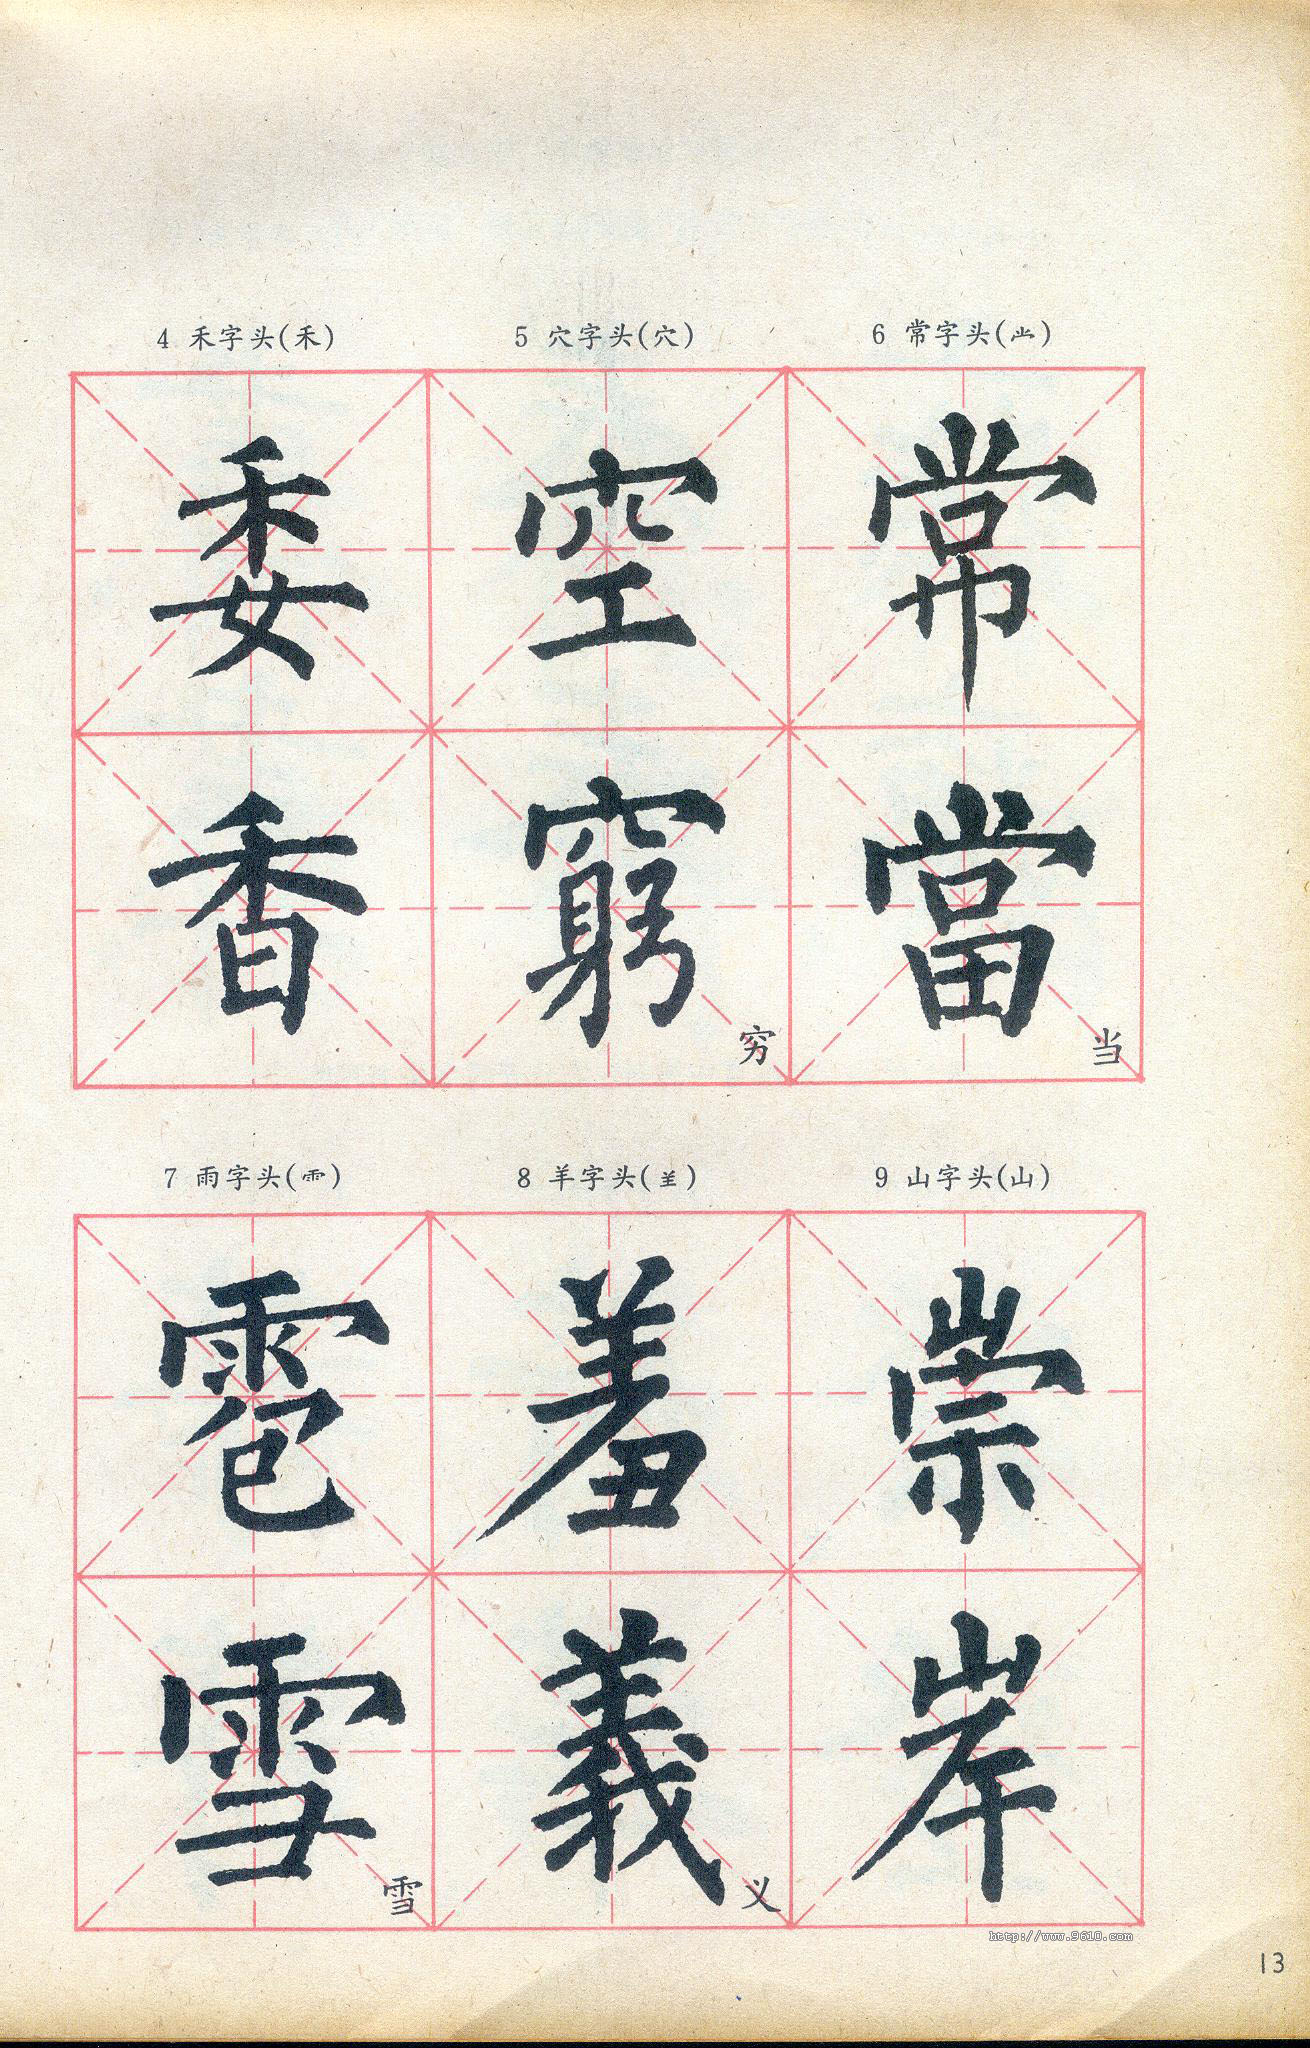 4 禾字头(禾) 5 穴字头(穴) 6 常字头(龸)
委 空 常
香 窮 當
穷 当
7 雨字头(⻗) 8 羊字头(⺷) 9 山字头(山)
雹 羞 崇
雪 義 岸
雪 义
http://www.9610.com
13